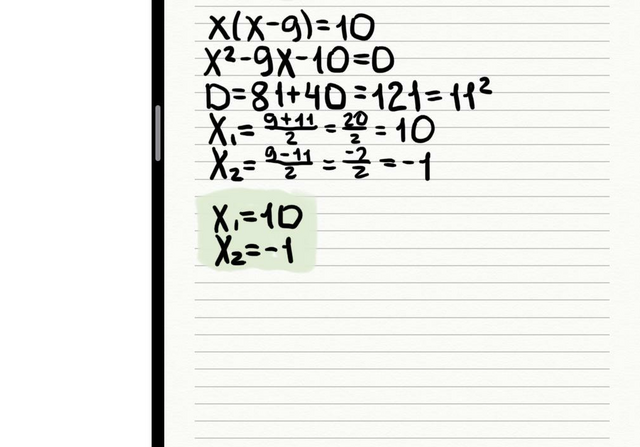 x(x-9)=10
x²-9x-10=0
D=81+40=121=11²
x₁=9+11/2=20/2=10
x₂=9-11/2=-2/2=-1
x₁=10
x₂=-1